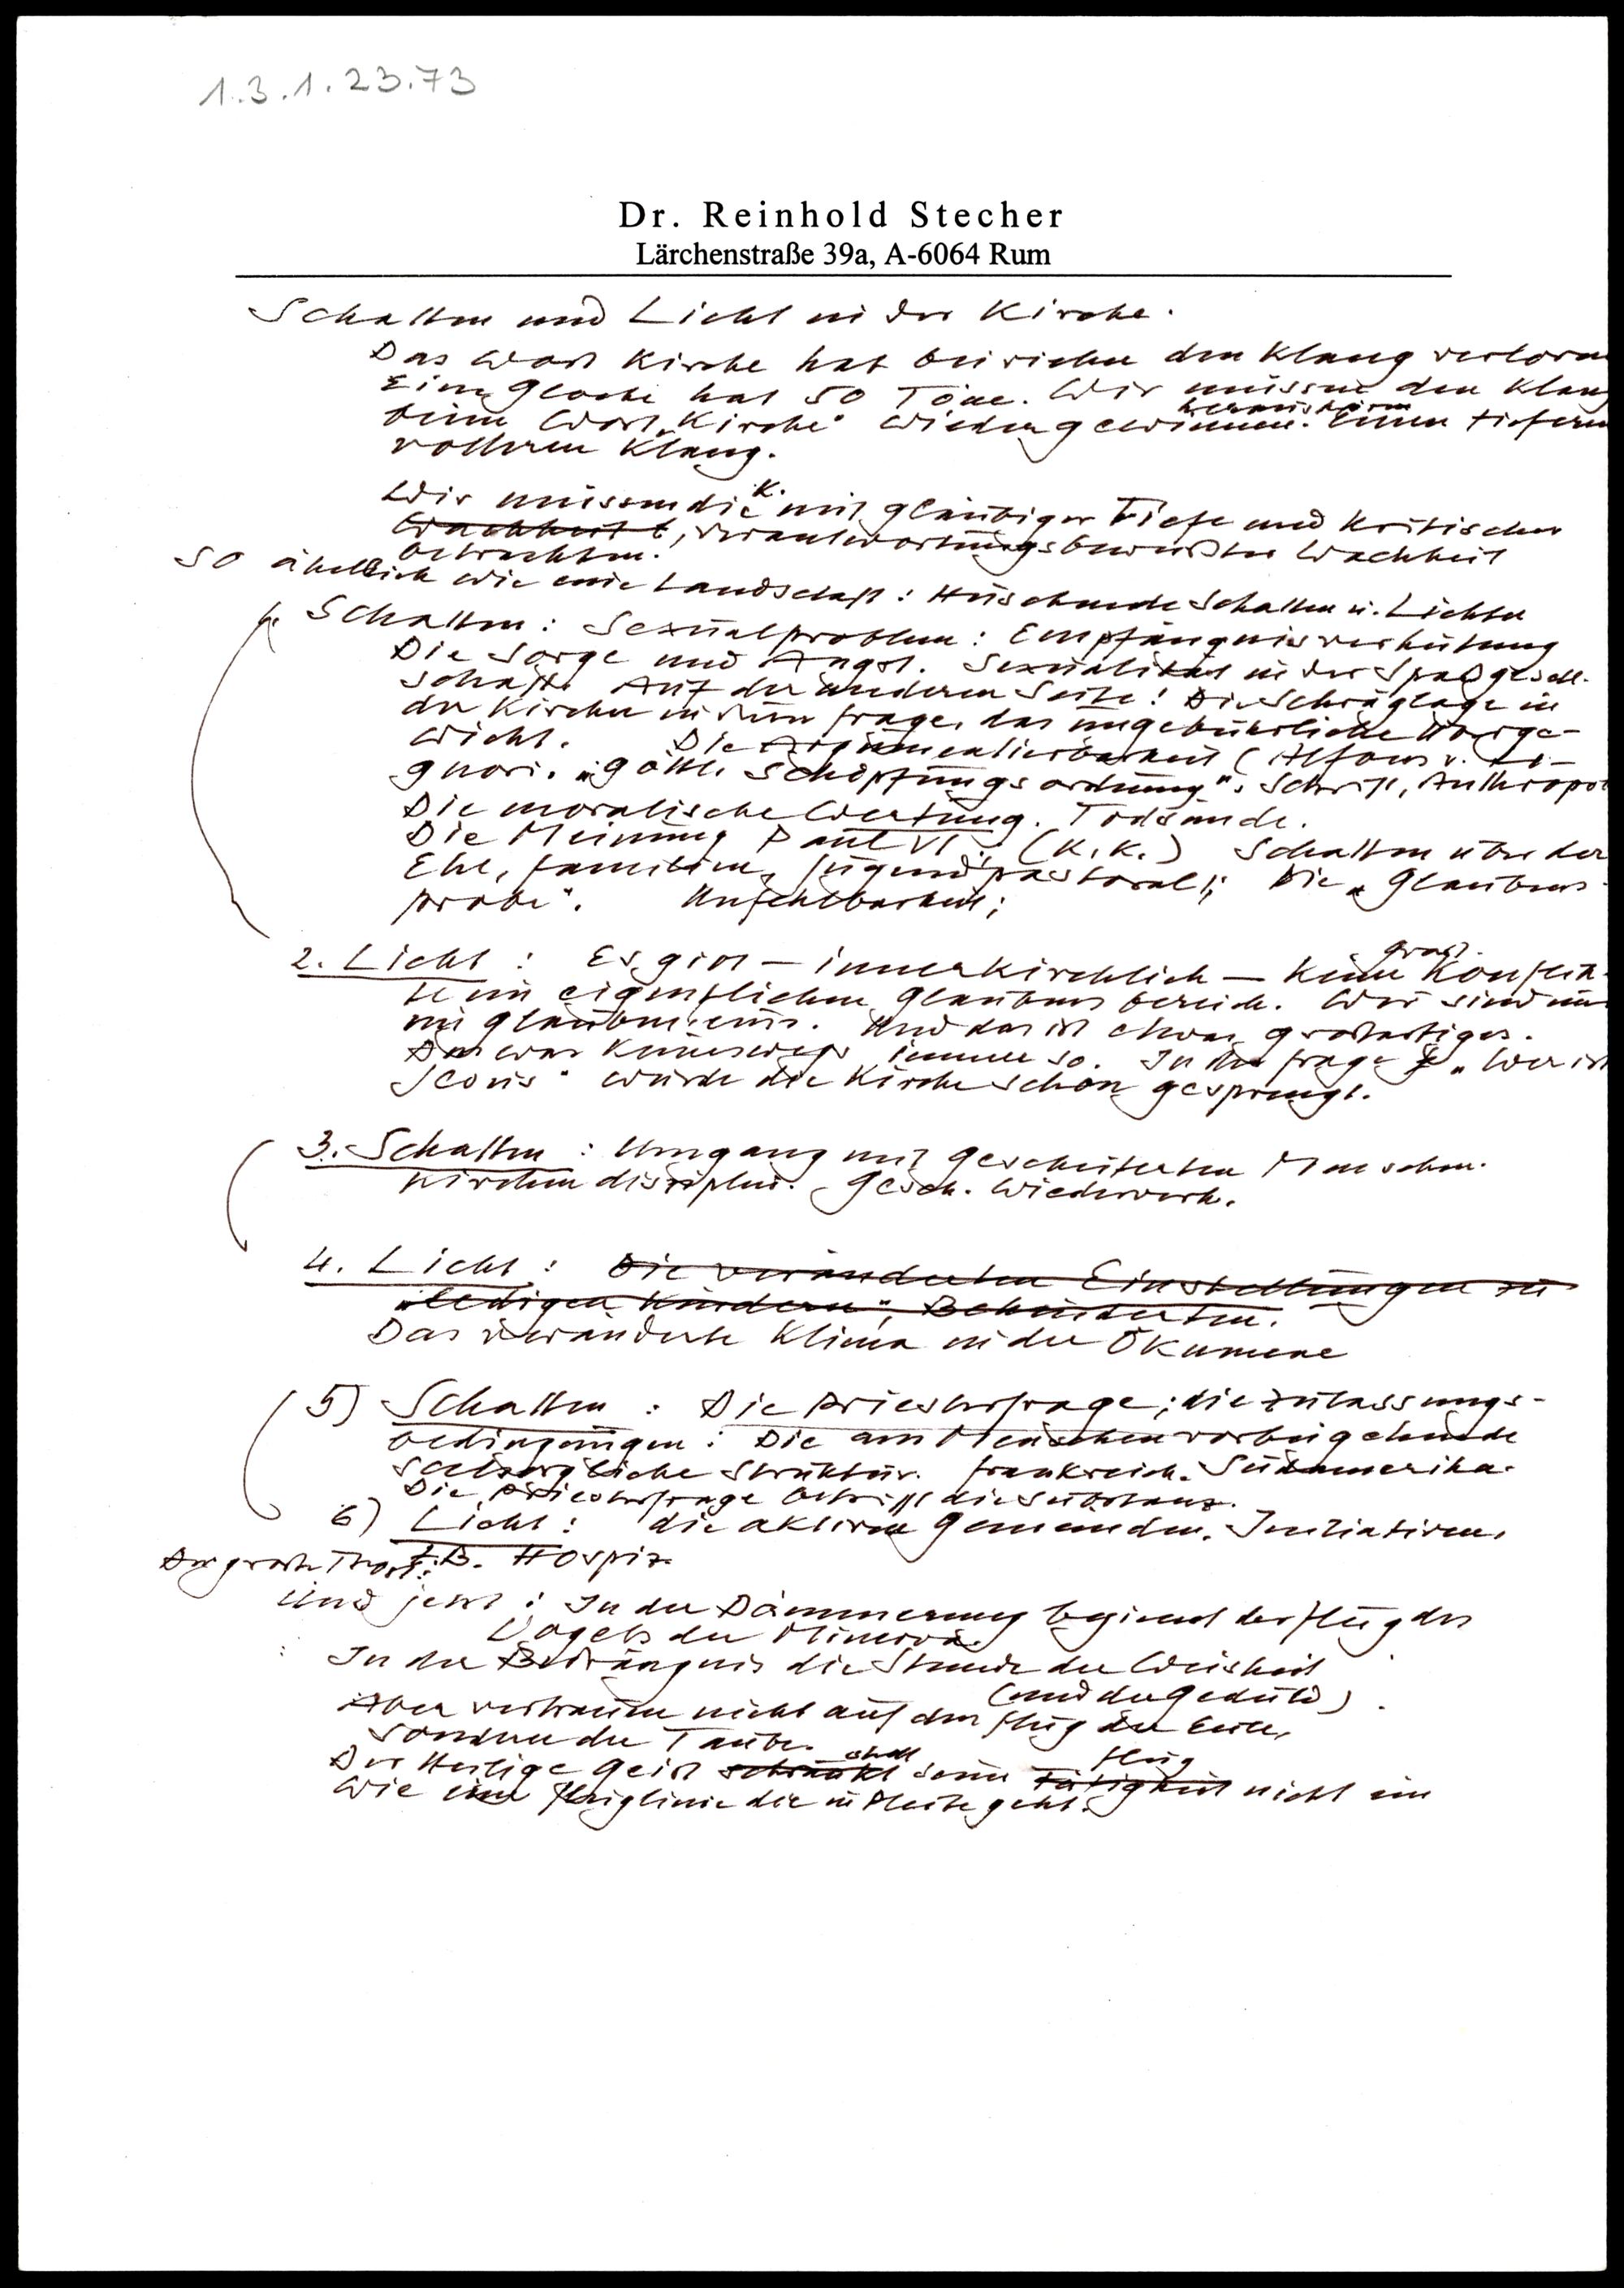 1.3.1.23.73
Dr. Reinhold Stecher
Lärchenstraße 39a, A-6064 Rum
Schatten und Licht in der Kirche.
Das Wort Kirche hat bei vielen den Klang verloren
Eine Glocke hat 50 Töne. Wir müssen den Klang
heraushören
beim Wort „Kirche" wieder gewinnen. Einen tieferen
volleren Klang.
K.
Wir müssen die mit gläubiger Tiefe und kritischer
Wachheit, verantwortungsbewußter Wachheit
betrachten.
So ähnlich wie eine Landschaft: Huschende Schatten u. Lichter
1. Schatten: Sexualproblem: Empfängnisverhütung
Die Sorge und Angst. Sexualität in der Spaßgesell-
schaft. Auf der anderen Seite! Die Schräglage in
der Kirche in dieser Frage, das ungebührliche Überge-
wicht. Die Argumentierbarkeit (Alfons v. Li-
guori. „göttl. Schöpfungsordnung". Schrift, Anthropol
Die moralische Wertung. Todsünde.
Die Meinung Paul VI. (K.K.) Schatten über der
Ehe, Familien, Jugendpastoral; Die „Glaubens-
probe". Unfehlbarkeit;
groß.
2. Licht: Es gibt – innerkirchlich – keine Konflik-
te im eigentlichen Glaubensbereich. Wir sind uns
im Glauben eins. Und das ist etwas großartiges.
Das war keineswegs immer so. In der Frage „Wer ist
Jesus" wurde die Kirche schon gesprengt.
3. Schatten: Umgang mit gescheiterten Menschen.
Kirchendisziplin. Gesch. Wiederverh.
4. Licht: Die veränderten Einstellungen zu
„ledigen Kindern", Behinderten.
Das veränderte Klima in der Ökumene
5) Schatten: Die Priesterfrage; die Zulassungs-
bedingungen: Die am Menschen vorbeigehende
seelsorgliche Struktur. Frankreich. Südamerika.
Die Priesterfrage betrifft die Substanz.
6) Licht: die aktiven Gemeinden. Initiativen,
z.B. Hospiz
Der große Trost:
Und jetzt: In der Dämmerung beginnt der Flug des
Vogels der Minerva.
In der Bedrängnis die Stunde der Weisheit
(und der Geduld)
Aber vertrauen nicht auf den Flug der Eule,
sondern der Taube.
stellt Flug
Der Heilige Geist schränkt seine Tätigkeit nicht ein
Wie eine Fluglinie die in Pleite geht.